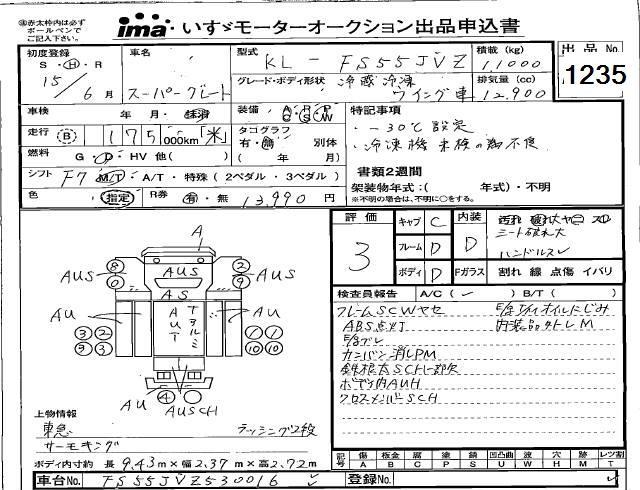 ※赤太枠内は必ず
ボールペンで
ご記入下さい。
ima いすゞモーターオークション出品申込書
初度登録 S・H・R 15/6月
車名 スーパーグレート
型式 KL-FS55JVZ
積載(kg) 11000
グレード・ボディ形状 冷蔵冷凍 ウイング車
排気量(cc) 12,900
出品No. 1235
車検 年 月・抹消
装備 A P P C S W
特記事項
走行 B 175 000km「米」
タコグラフ 有・無 別体 ( 年 月)
・-30℃設定
・冷凍機 未検の為不良
燃料 G・D・HV 他( )
書類2週間
シフト F7 M/T・A/T・特殊(2ペダル・3ペダル)
架装物年式:( 年式)・不明
※不明の場合は、不明に○をする。
色 (指定) R券 有・無 13,990 円
評価 3
キャブ C
フレーム D
ボディ D
内装 D
シート破れ大
ハンドルスレ
Fガラス 割れ 線 点傷 イバリ
検査員報告 A/C(✓) B/T( )
フレームSCWヤセ
E/g T/MオイルにじみM
ABS点灯
内装品外トレM
E/gブレ
カンバン消しPM
錆根太SCH一部欠
ボデー内AUH
クロスメンバーSCH
A
8 0 AUS
2 9 AUS
AUS
AS
AU
3 2 9 3
アオルミ
AUT
AU
1 1 10 10
AU 4 AUSCH
上物情報
東急 ラッシング2段
サーモキング
ボディ内寸約 長 9.43m×幅2.37m×高2.72m
記号 傷A 板金B 腐C 塗P 錆S 凹凸曲U 波W 穴H 跡M レツ割T
車台No. FS55JVZ530016 ✓
登録No. ✓